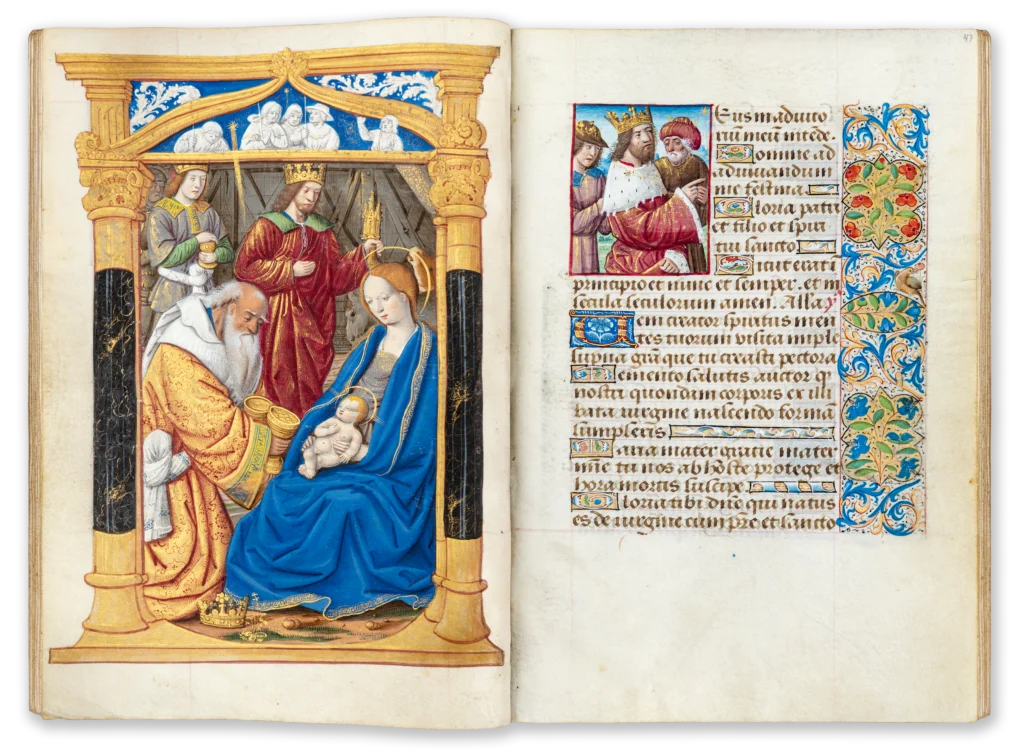 47
Eus in adiuto
riũ meũ intẽde.
Domine ad
adiuuandum
me festina
Gloria patri
et filio et spiri
tui sancto
Sicut erat i
principio et nunc et semper. et in
secula seculorum amen. Alla
Ueni creator spiritus men
tes tuorum visita imple
superna grã que tu creasti pectora
Memento salutis auctor q
nostri quondam corporis ex illi
bata uirgine nascendo formã
sumpseris
Maria mater gratie mater
mĩe tu nos ab hoste protege et
hora mortis suscipe
Gloria tibi dñe qui natus
es de uirgine cum pr̃e et sancto